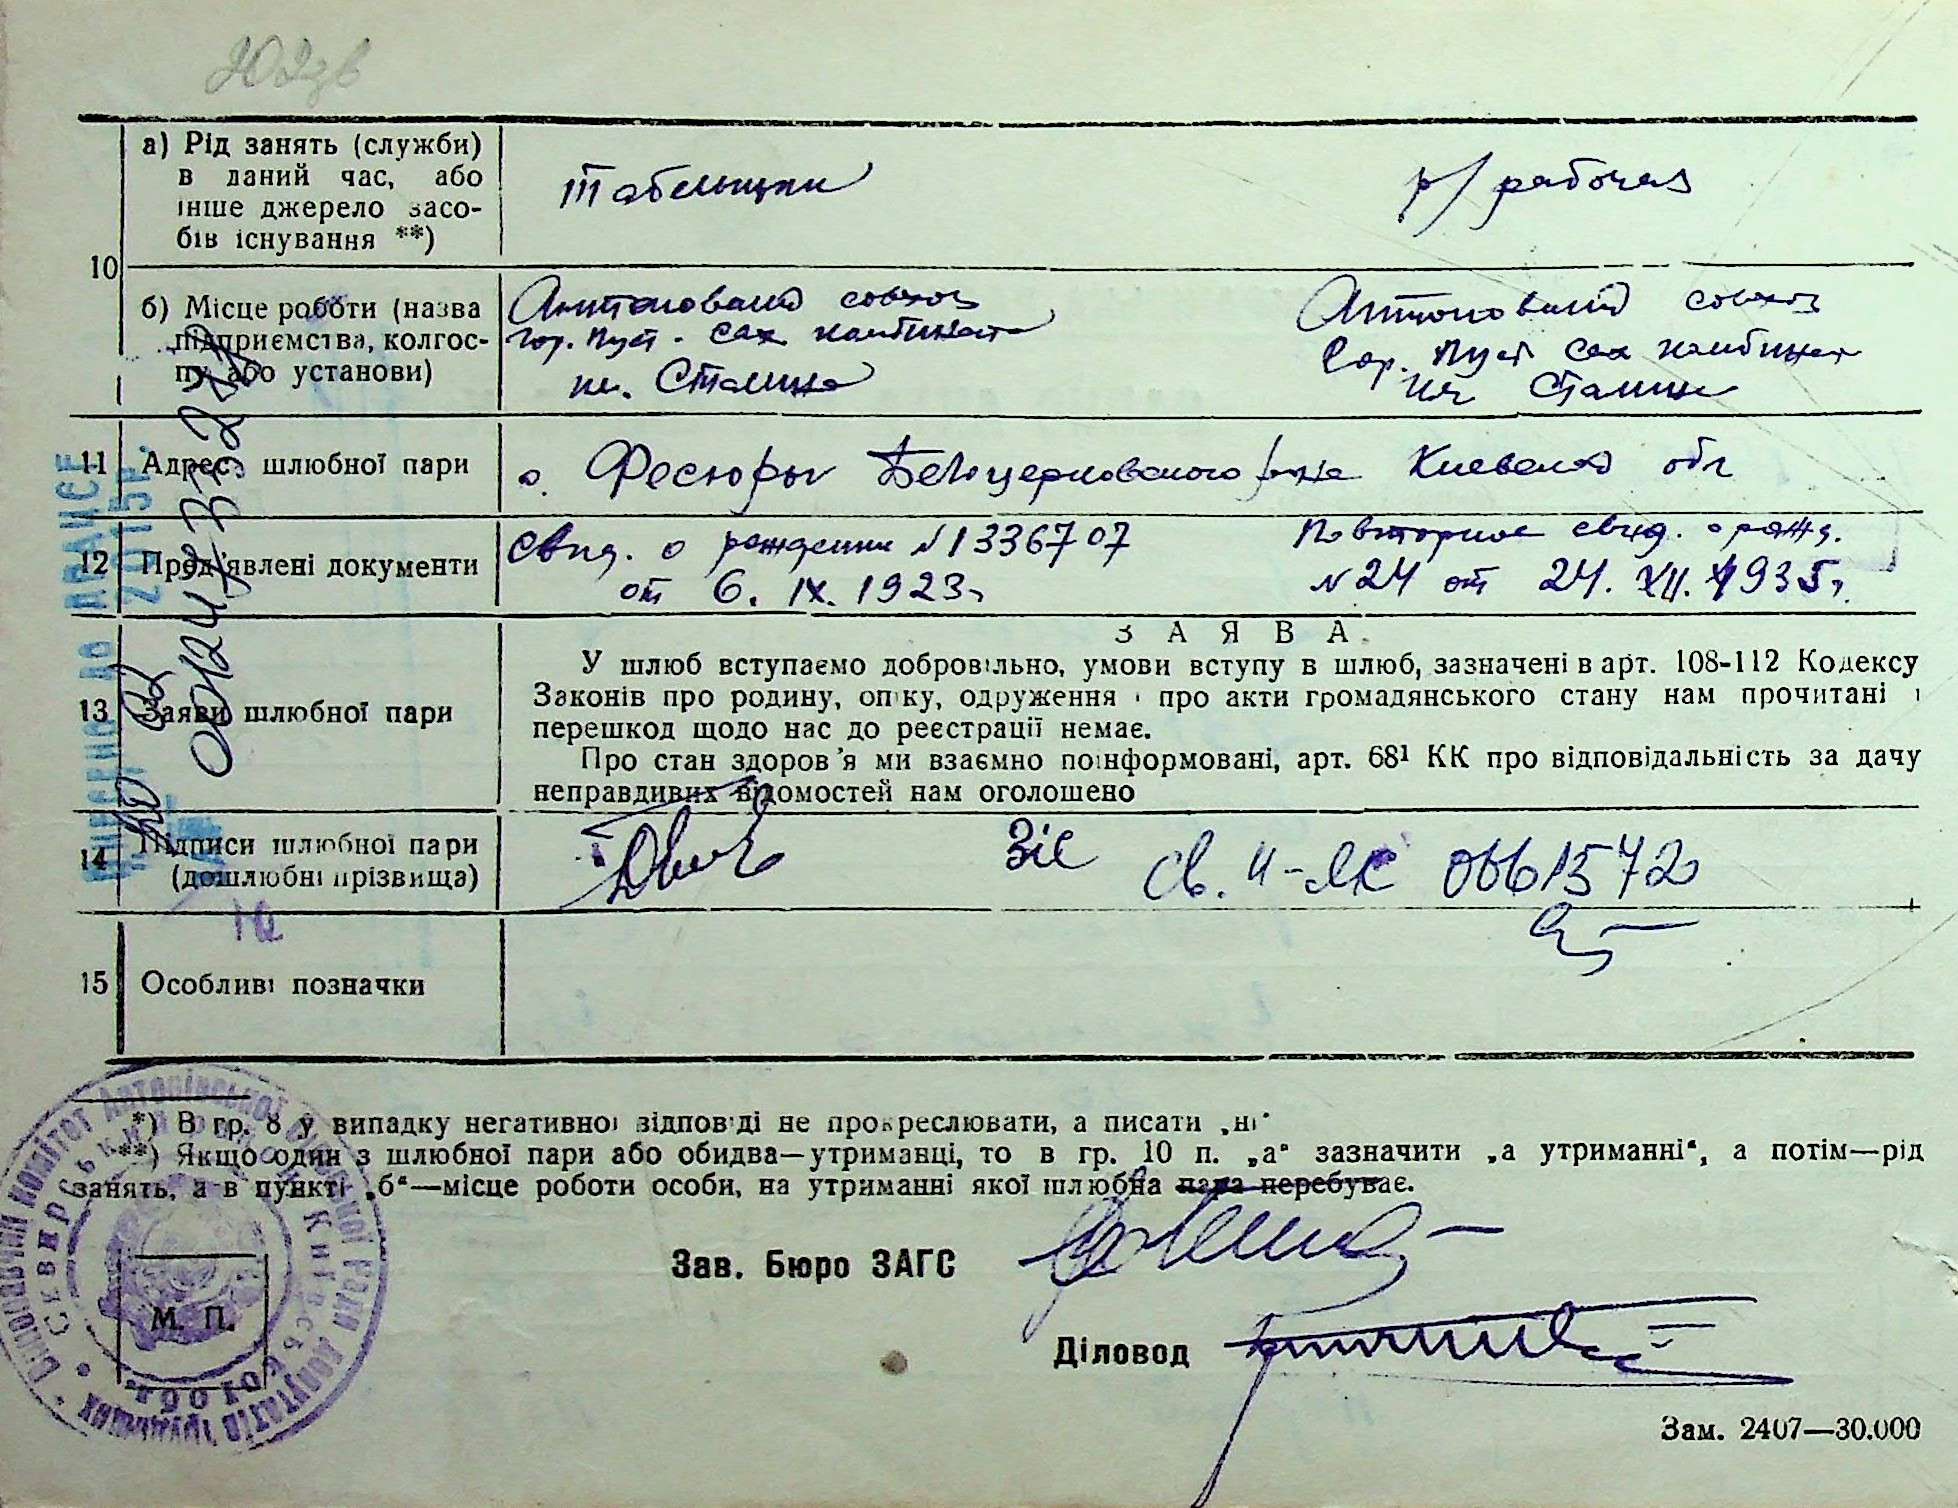 202зв
10
а) Рід занять (служби)
в даний час, або
інше джерело засо-
бів існування **)
Табельщик
р/рабочая
б) Місце роботи (назва
підприємства, колгос-
пу або установи)
Антоновский совхоз
Гор. Пуст. Сах комбината
им. Сталина
Антоновский совхоз
Гор. Пуст Сах комбинат
им Сталина
11 Адреса шлюбної пари
с. Фесюры Белоцерковского р-на Киевской обл
12 Пред'явлені документи
Свид. о рождении № 1336707
от 6. IX. 1923г
Повторное свид. о рожд.
№ 24 от 24. XII. 1935г.
13 Заяви шлюбної пари
З А Я В А
У шлюб вступаємо добровільно, умови вступу в шлюб, зазначені в арт. 108-112 Кодексу
Законів про родину, опіку, одруження і про акти громадянського стану нам прочитані і
перешкод щодо нас до реєстрації немає.
Про стан здоров'я ми взаємно поінформовані, арт. 68¹ КК про відповідальність за дачу
неправдивих відомостей нам оголошено
14 Підписи шлюбної пари
(дошлюбні прізвища)
Зіс
Св. II-ЯК 0661572
15 Особливі позначки
2015р.
*) В гр. 8 у випадку негативної відповіді не прокреслювати, а писати „ні"
**) Якщо один з шлюбної пари або обидва—утриманці, то в гр. 10 п. „а" зазначити „а утриманні", а потім—рід
занять, а в пункті „б"—місце роботи особи, на утриманні якої шлюбна пара перебуває.
Зав. Бюро ЗАГС
Діловод
М. П.
Виконавчий комітет Антонівської сільської Ради депутатів трудящих
Сквирський район Київської
Зам. 2407—30.000